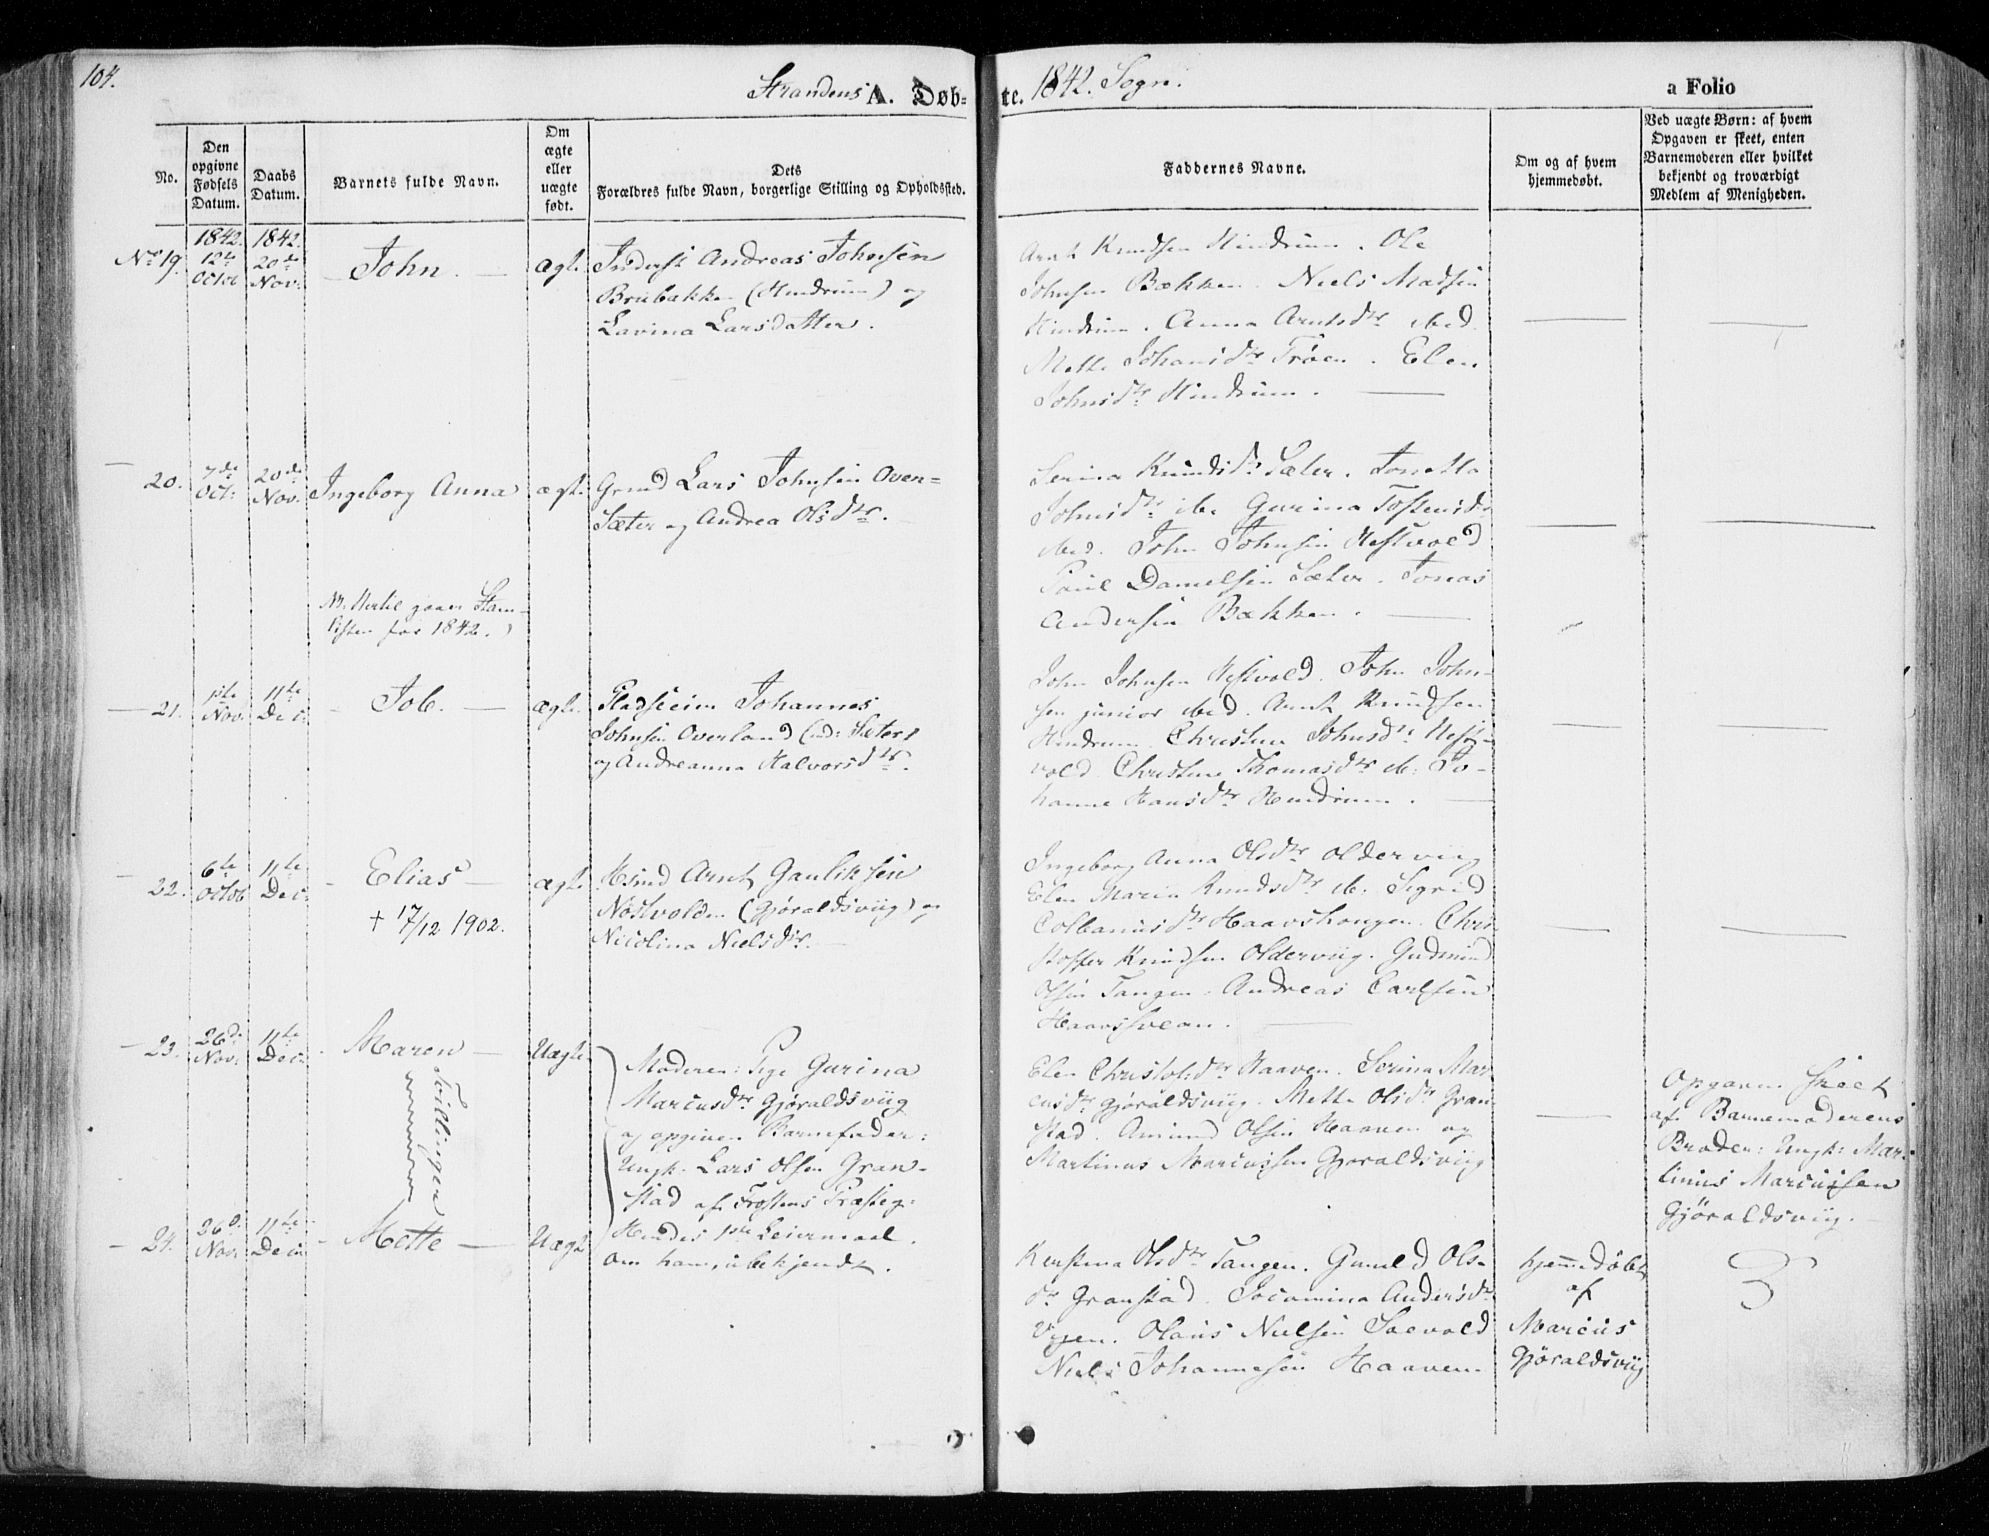 104.
Strandens A. Døb-
te. 1842. Sogn.
a Folio
No.
Den
opgivne
Fødsels
Datum.
Daabs
Datum.
Barnets fulde Navn.
Om
ægte
eller
uægte
født.
Dets
Forældres fulde Navn, borgerlige Stilling og Opholdssted.
Faddernes Navne.
Om og af hvem
hjemmedøbt.
Ved uægte Børn: af hvem
Opgaven er skeet, enten
Barnemoderen eller hvilket
bekjendt og troværdigt
Medlem af Menigheden.
1842. 1842.
No 19. 12te 20de
Octob Nov:
John.
Ægte
Inderst Andreas Johnsen
Brubækken (Hindrum) og
Lavina Larsdatter.
Arnt Knudsen Hindrum. Ole
Johnsen Bækken. Niels Madsen
Hindrum. Anna Arntsdtr ibid.
Mette Johansdtr Trøen. Elen
Johnsdtr Hindrum.
20. 7de 20de
Oct: Nov.
Ingeborg Anna
ægte.
Grmd Lars Johnsen Oven-
Sæter og Andrea Olsdtr.
Serina Knudsdtr Sæter. Jonetta
Johnsdtr ib. Gurina Tostensdtr
ibid. John Johnsen Hestvold
Paul Danielsen Sæter. Jonas
Andersen Bækken.
NB. Hertil gaaer Stam-
listen for 1842.)
21. 1ste 11te
Nov. Dec:
Job.
ægte.
Pladseier Johannes
Johnsen Overland (ind: Sæter)
og Andreanna Halvorsdtr.
John Johnsen Hestvold. John John-
sen junior ibid. Arnt Knudsen
Hindrum. Christine Johnsdtr Hest-
vold. Christine Thomasdtr ib: Jo-
hanna Hansdtr Hindrum.
22. 6te 11te
Octob Dec:
Elias
† 17/12 1902.
ægte.
Hsmd Arnt Gauliksen
Nøstvolden (Gjøraldsviig) og
Nicolina Nielsdtr.
Ingeborg Anna Olsdtr Olderviig
Elen Maria Knudsdtr ib. Sigrid
Colbanusdtr Haavshougen. Chri-
stoffer Knudsen Olderviig. Gudmund
Olsen Tangen. Andreas Carlsen
Haavsveen.
23. 26de 11te
Nov: Dec:
Maren
Tvillinger
Uægte
Moderen: Pige Gurina
Marcusdtr Gjøraldsviig
og opgiven Barnefader:
Ungk: Lars Olsen Gran-
stad af Frostens Præsteg:
Hendes 1ste Leiermaal.
om ham, ubekjendt.
Elen Christophdtr Haaven. Serina Mar-
cusdtr Gjøraldsviig. Mette Olsdtr Gran-
stad. Amund Olsen Haaven og
Martinus Marcussen Gjøraldsviig
Opgaven skeet
af Barnemoderens
Broder: Ungk: Mar-
tinus Marcussen
Gjøraldsviig.
24. 26d. 11te
Nov: Dec:
Mette
Uægte
Kerstina Olsdtr Tangen. Gunild Ols-
dtr Granstad. Jocumina Andersdtr
Vigen. Olaus Nielsen Solvold
Niels Johannesen Haaven.
hjemmedøbt
af
Marcus
Gjøraldsviig